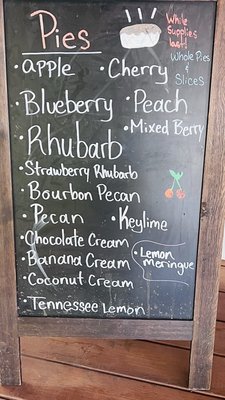 Pies
While
Supplies
last!
Whole Pies
&
Slices
• Apple • Cherry
• Blueberry • Peach
• Rhubarb • Mixed Berry
• Strawberry Rhubarb
• Bourbon Pecan
• Pecan • Keylime
• Chocolate Cream
• Banana Cream
• Coconut Cream
• Lemon
meringue
• Tennessee Lemon